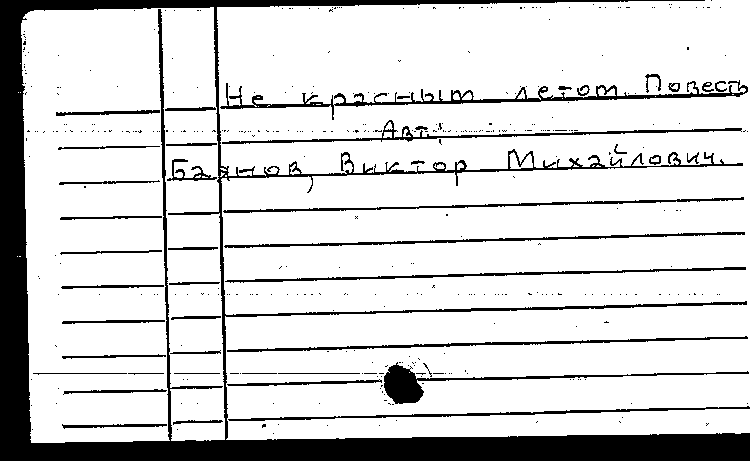 Не красным летом. Повесть
Авт.:
Баянов, Виктор Михайлович.